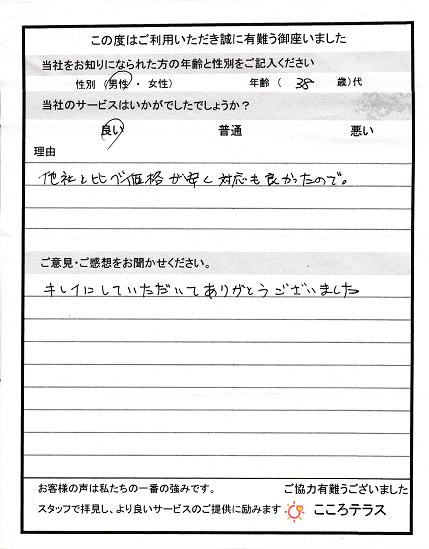 この度はご利用いただき誠に有難う御座いました
当社をお知りになられた方の年齢と性別をご記入ください
性別 (男性 ・ 女性) 年齢 ( 38 歳)代
当社のサービスはいかがでしたでしょうか?
良い 普通 悪い
理由
他社と比べ価格が安く対応も良かったので。
ご意見・ご感想をお聞かせください。
キレイにしていただいてありがとうございました
お客様の声は私たちの一番の強みです。 ご協力有難うございました
スタッフで拝見し、より良いサービスのご提供に励みます こころテラス